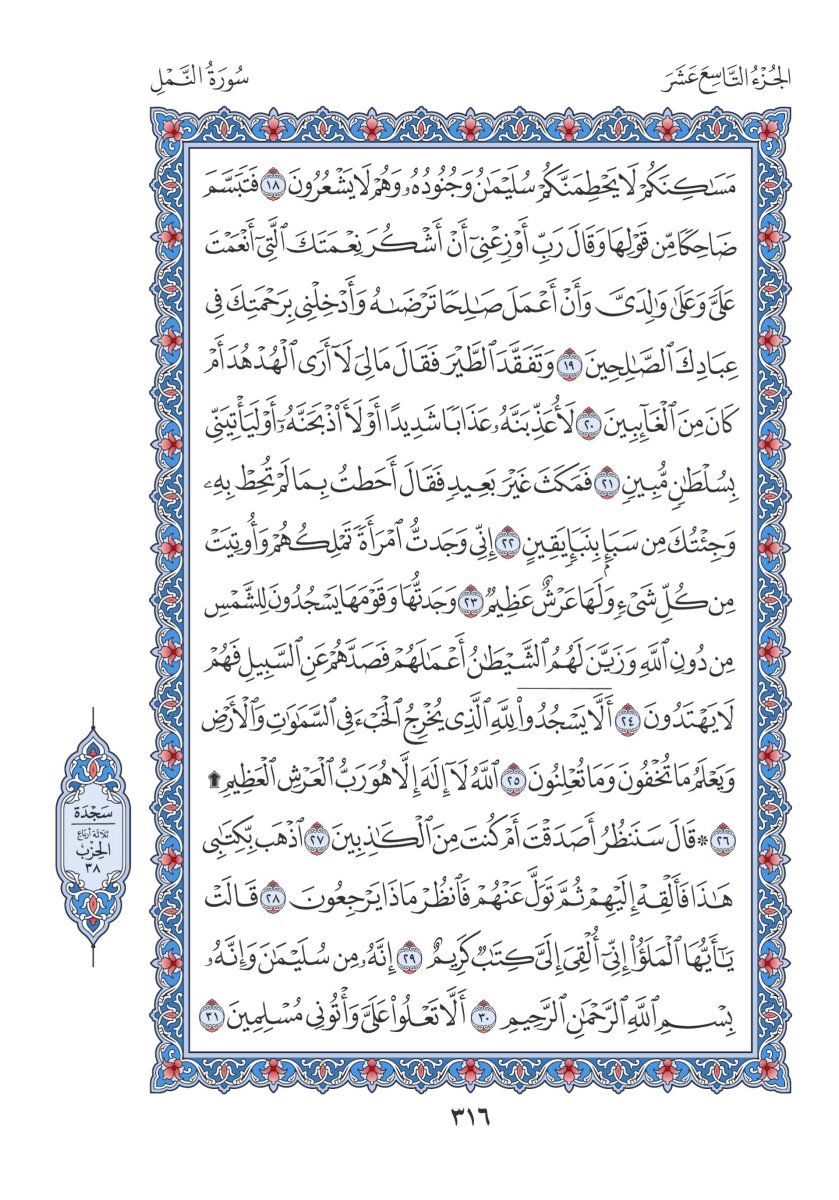 الجُزْءُ التَّاسِعَ عَشَرَ
سُورَةُ النَّمْلِ
مَسَٰكِنَكُمْ لَا يَحْطِمَنَّكُمْ سُلَيْمَٰنُ وَجُنُودُهُۥ وَهُمْ لَا يَشْعُرُونَ ١٨ فَتَبَسَّمَ
ضَاحِكًا مِّن قَوْلِهَا وَقَالَ رَبِّ أَوْزِعْنِىٓ أَنْ أَشْكُرَ نِعْمَتَكَ ٱلَّتِىٓ أَنْعَمْتَ
عَلَىَّ وَعَلَىٰ وَٰلِدَىَّ وَأَنْ أَعْمَلَ صَٰلِحًا تَرْضَىٰهُ وَأَدْخِلْنِى بِرَحْمَتِكَ فِى
عِبَادِكَ ٱلصَّٰلِحِينَ ١٩ وَتَفَقَّدَ ٱلطَّيْرَ فَقَالَ مَالِىَ لَآ أَرَى ٱلْهُدْهُدَ أَمْ
كَانَ مِنَ ٱلْغَآئِبِينَ ٢٠ لَأُعَذِّبَنَّهُۥ عَذَابًا شَدِيدًا أَوْ لَأَا۟ذْبَحَنَّهُۥٓ أَوْ لَيَأْتِيَنِّى
بِسُلْطَٰنٍ مُّبِينٍ ٢١ فَمَكَثَ غَيْرَ بَعِيدٍ فَقَالَ أَحَطتُ بِمَا لَمْ تُحِطْ بِهِۦ
وَجِئْتُكَ مِن سَبَإٍۭ بِنَبَإٍ يَقِينٍ ٢٢ إِنِّى وَجَدتُّ ٱمْرَأَةً تَمْلِكُهُمْ وَأُوتِيَتْ
مِن كُلِّ شَىْءٍ وَلَهَا عَرْشٌ عَظِيمٌ ٢٣ وَجَدتُّهَا وَقَوْمَهَا يَسْجُدُونَ لِلشَّمْسِ
مِن دُونِ ٱللَّهِ وَزَيَّنَ لَهُمُ ٱلشَّيْطَٰنُ أَعْمَٰلَهُمْ فَصَدَّهُمْ عَنِ ٱلسَّبِيلِ فَهُمْ
لَا يَهْتَدُونَ ٢٤ أَلَّا يَسْجُدُوا۟ لِلَّهِ ٱلَّذِى يُخْرِجُ ٱلْخَبْءَ فِى ٱلسَّمَٰوَٰتِ وَٱلْأَرْضِ
وَيَعْلَمُ مَا تُخْفُونَ وَمَا تُعْلِنُونَ ٢٥ ٱللَّهُ لَآ إِلَٰهَ إِلَّا هُوَ رَبُّ ٱلْعَرْشِ ٱلْعَظِيمِ ۩
٢٦ ۞ قَالَ سَنَنظُرُ أَصَدَقْتَ أَمْ كُنتَ مِنَ ٱلْكَٰذِبِينَ ٢٧ ٱذْهَب بِّكِتَٰبِى
هَٰذَا فَأَلْقِهْ إِلَيْهِمْ ثُمَّ تَوَلَّ عَنْهُمْ فَٱنظُرْ مَاذَا يَرْجِعُونَ ٢٨ قَالَتْ
يَٰٓأَيُّهَا ٱلْمَلَؤُا۟ إِنِّىٓ أُلْقِىَ إِلَىَّ كِتَٰبٌ كَرِيمٌ ٢٩ إِنَّهُۥ مِن سُلَيْمَٰنَ وَإِنَّهُۥ
بِسْمِ ٱللَّهِ ٱلرَّحْمَٰنِ ٱلرَّحِيمِ ٣٠ أَلَّا تَعْلُوا۟ عَلَىَّ وَأْتُونِى مُسْلِمِينَ ٣١
سَجْدَة
ثلاثة أرباع
الحِزْب
٣٨
٣١٦